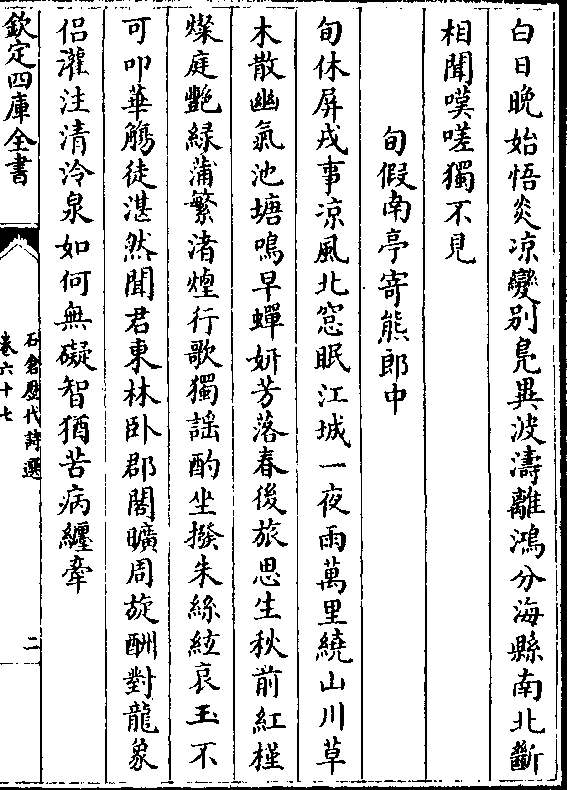 白日晚始悟炎凉變別鳬異波濤離鴻分海縣南北斷
相聞嘆嗟獨不見
旬假南亭寄熊郎中
旬休屏戎事凉風北窓眠江城一夜雨萬里繞山川草
木散幽氣池塘鳴早蟬妍芳落春後旅思生秋前紅槿
燦庭艷緑蒲繁渚煙行歌獨謡酌坐撥朱絲絃哀玉不
可叩華觴徒湛然聞君東林卧郡閣曠周旋酬對龍象
侣灌注清泠泉如何無礙智猶苦病纏牽
欽定四庫全書
石倉歴代詩選
卷六十七
二